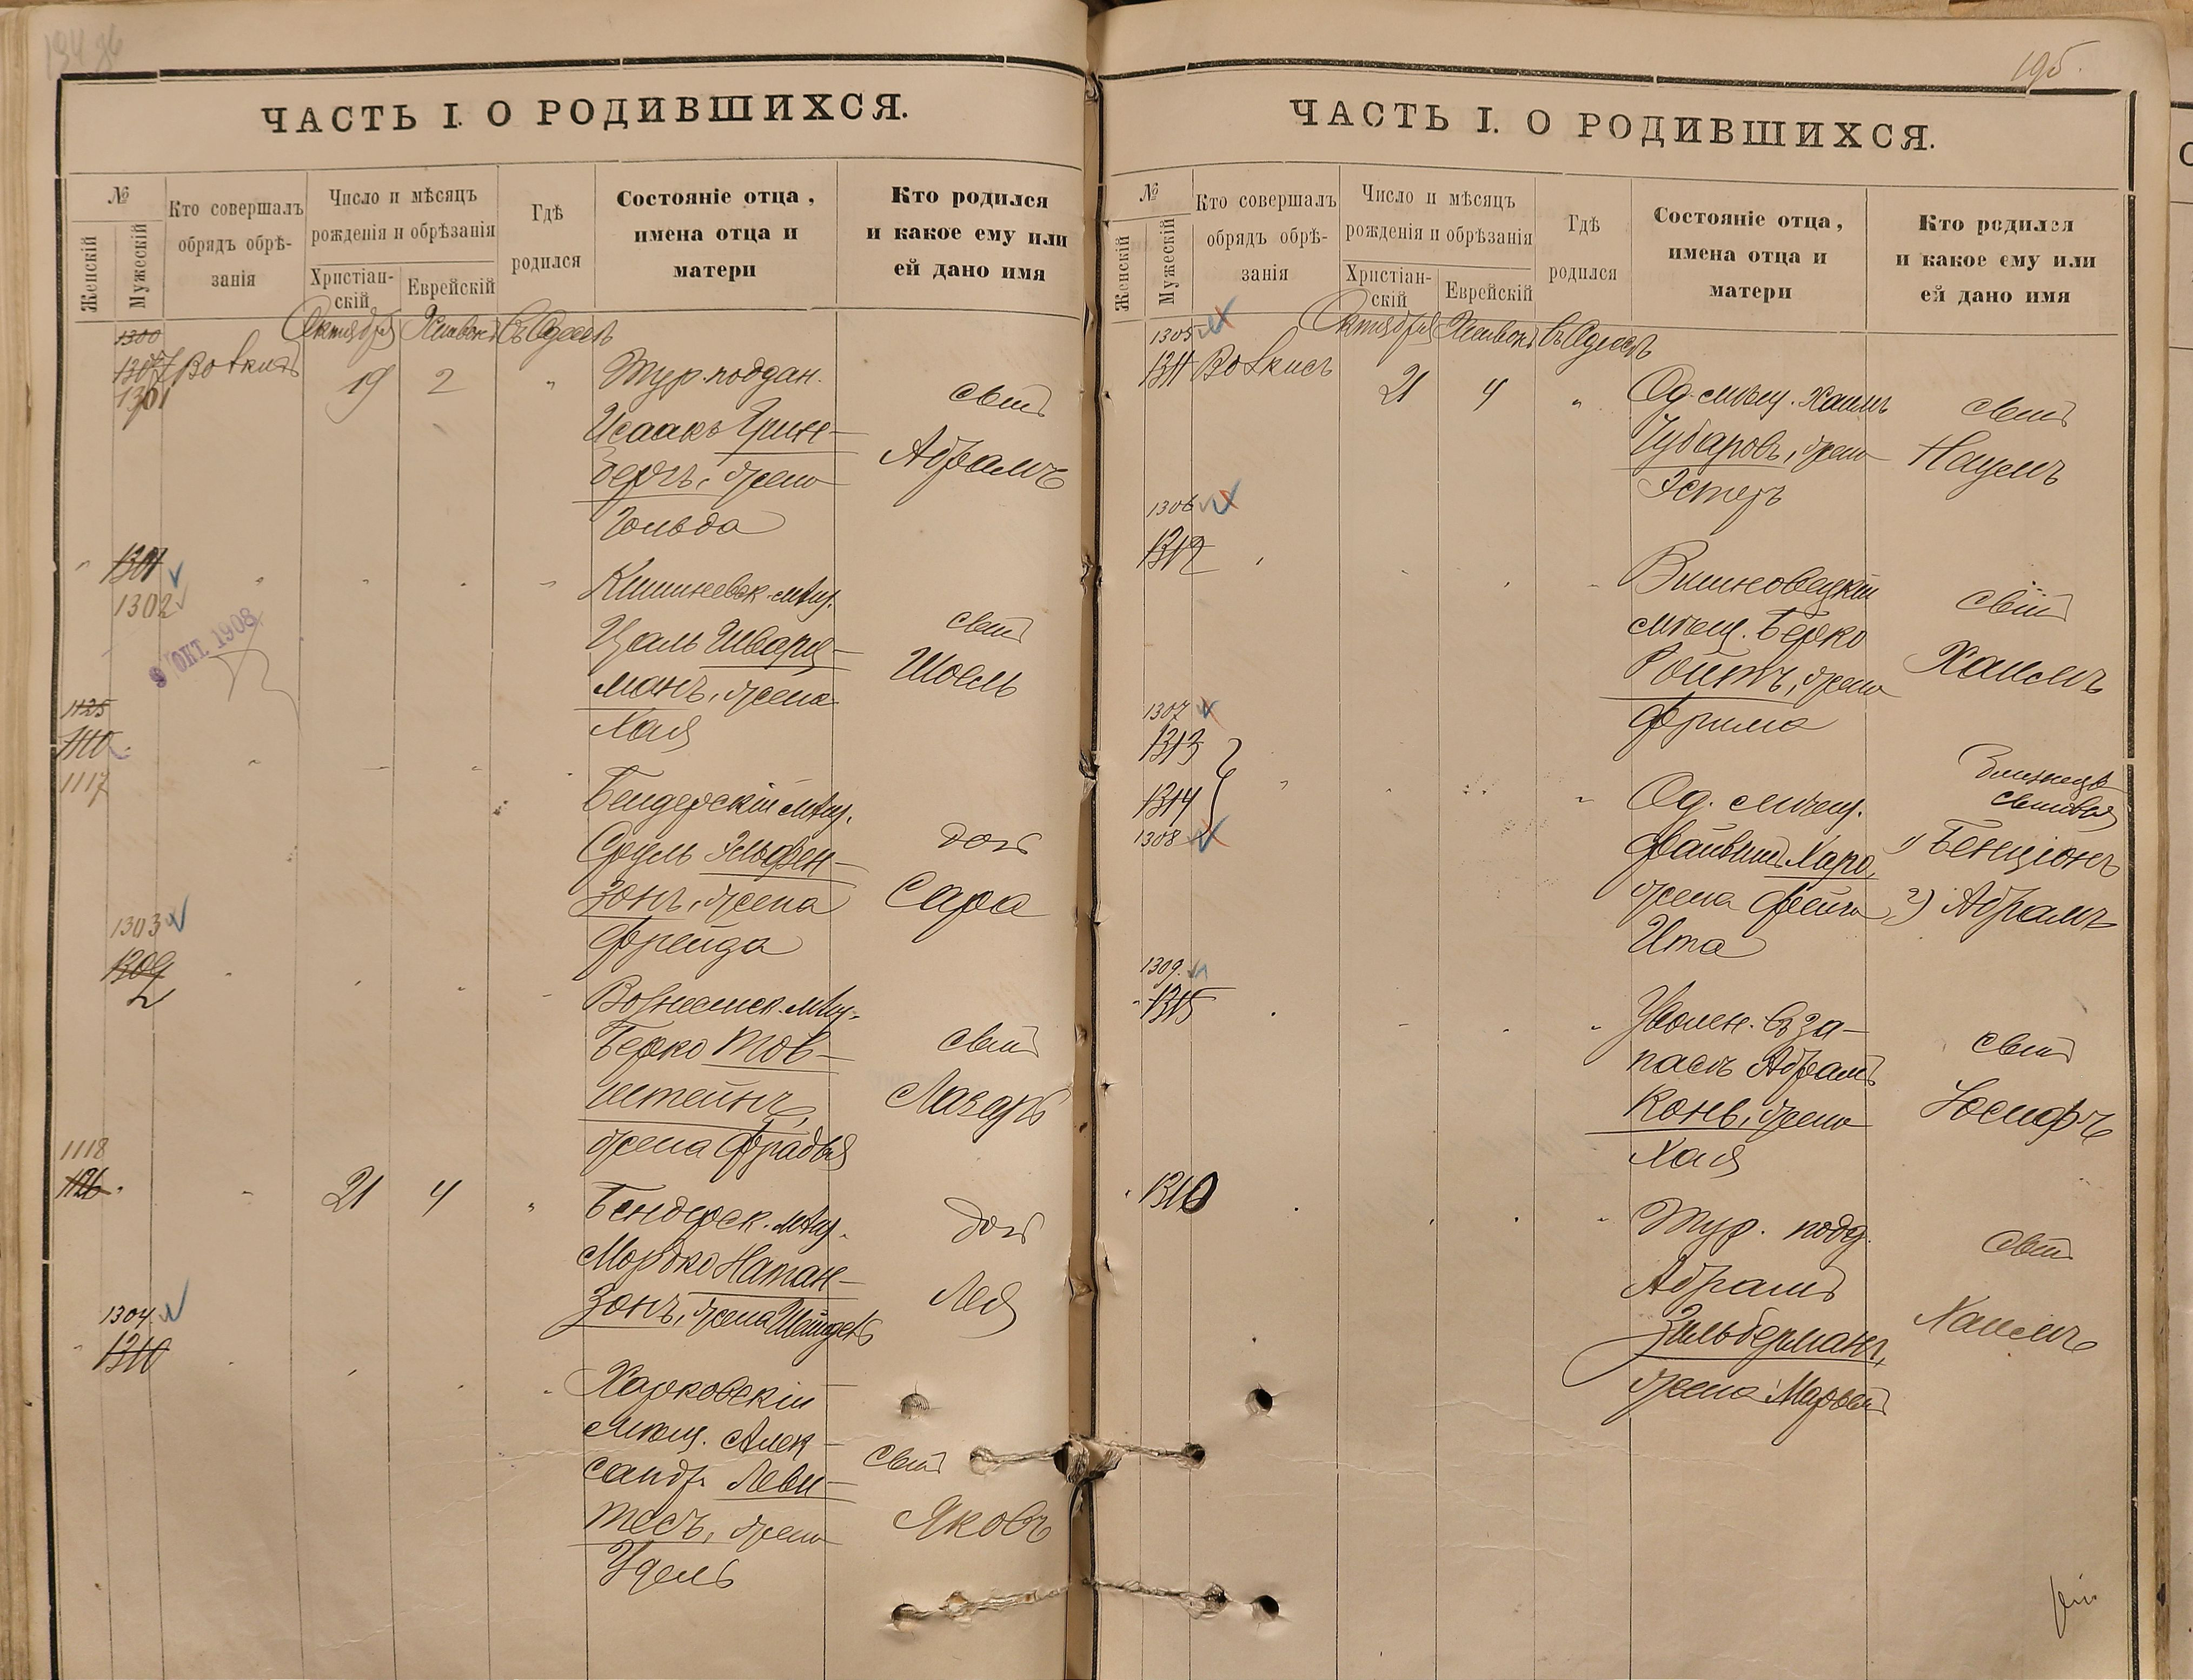 ЧАСТЬ I. О РОДИВШИХСЯ.
№
Женскій
Мужескій
Кто совершалъ
обрядъ обрѣ-
занія
Число и мѣсяцъ
рожденія и обрѣзанія
Христіан-
скій
Еврейскій
Гдѣ
родился
Состояніе отца,
имена отца и
матери
Кто родился
и какое ему или
ей дано имя
Октября
въ Одессѣ
1300
1301
19
2
"
Тур. поддан.
Исаакъ Грин-
бергъ, жена
Гольда
сынъ
Абрамъ
1301
1302
9 ОКТ. 1908
Кишиневск. мѣщ.
Цаль Шварц-
манъ, жена
Хая
сынъ
Шоель
1125
1117
Бендерскій мѣщ.
Сруль Эльфен-
зонъ, жена
Фрейда
дочь
Сара
1303
1309
Вознесенск. мѣщ.
Берко Тов-
штейнъ,
жена Фрадля
сынъ
Лазарь
1118
1126
21
4
"
Бендерск. мѣщ.
Мордко Натан-
зонъ, жена Шейндель
дочь
Лея
1304
1310
Харковскій
мѣщ. Алек-
сандр. Леви-
тесъ, жена
Удель
сынъ
Яковъ
195.
ЧАСТЬ I. О РОДИВШИХСЯ.
№
Женскій
Мужескій
Кто совершалъ
обрядъ обрѣ-
занія
Число и мѣсяцъ
рожденія и обрѣзанія
Христіан-
скій
Еврейскій
Гдѣ
родился
Состояніе отца,
имена отца и
матери
Кто родился
и какое ему или
ей дано имя
Октября
въ Одессѣ
1305
1311
21
4
"
Од. мѣщ. Хаимъ
Чубаровъ, жена
Эстеръ
сынъ
Наумъ
1306
1312
Вишновецкій
мѣщ. Берко
Ройтъ, жена
Фрима
сынъ
Хаимъ
1307
1313
1314
1308
Од. мѣщ.
Файвишъ Харо,
жена Фейга
Ита
Близнецы
сыновья
1) Бенціонъ
2) Абрамъ
1309.
1315
Уволен. въ за-
пасъ Абрамъ
Конъ, жена
Хая
сынъ
Іосифъ
1310
Тур. подд.
Абрамъ
Зильберманъ,
жена Марьемъ
сынъ
Хаимъ